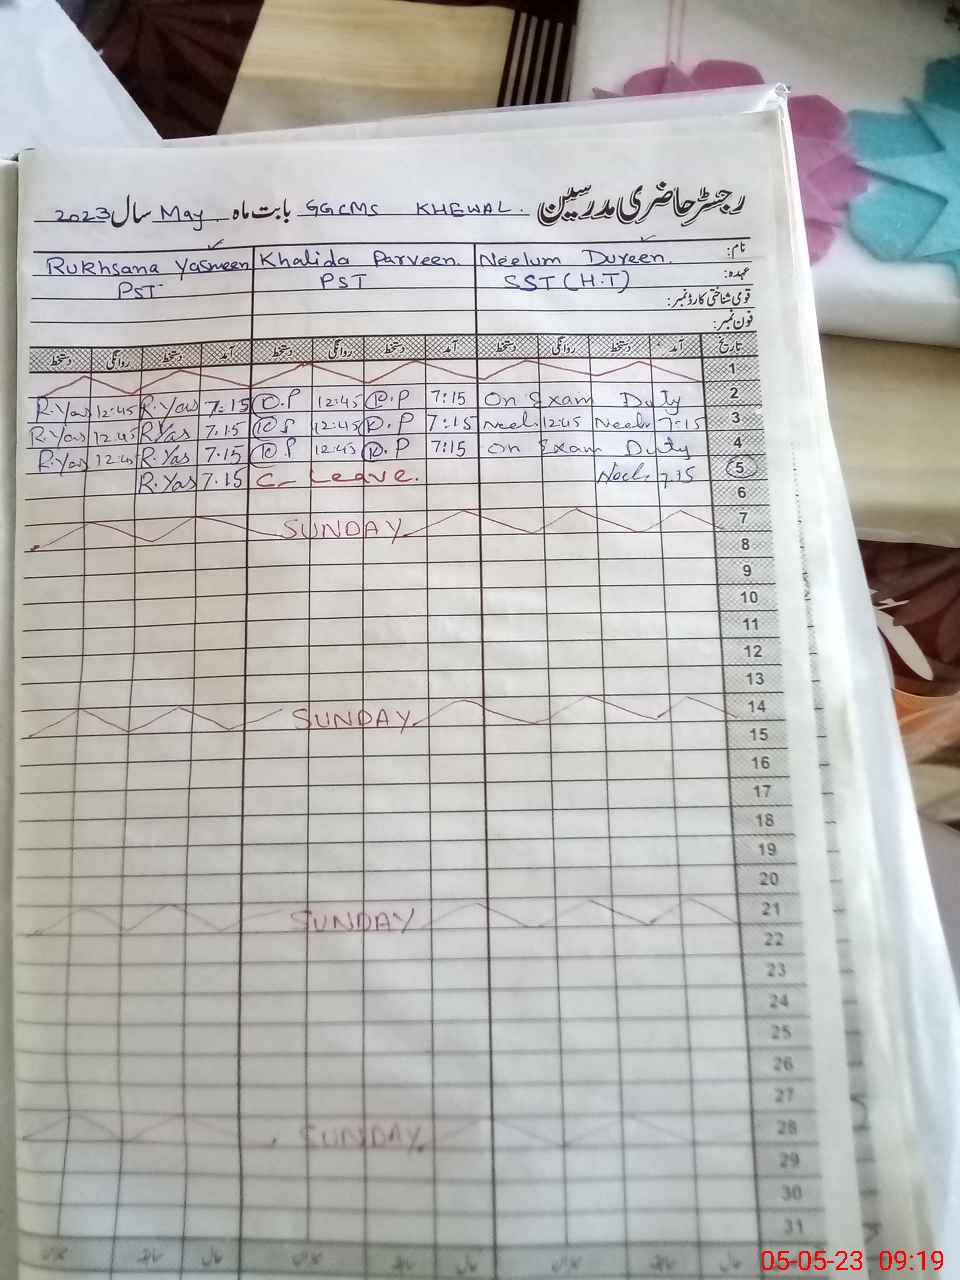 رجسٹر حاضری مدرسین GGCMS KHEWAL. بابت ماہ May سال 2023
نام: Neelum Dureen. Khalida Parveen. Rukhsana Yasmeen
عہدہ: SST (H.T) PST PST
قومی شناختی کارڈ نمبر:
فون نمبر:
تاریخ آمد دستخط روانگی دستخط آمد دستخط روانگی دستخط آمد دستخط روانگی دستخط
1
2 On Exam Duty 7:15 P 12:45 P 7:15 R.Yas 12:45 R.Yas
3 7:15 Neel 12:45 Neel 7:15 P 12:45 7.15 R.Yas 12:45 R.Yas
4 On Exam Duty 7:15 P 12:45 P 7.15 R.Yas 12:45 R.Yas
5 7.15 Neel C- Leave. 7.15 R.Yas
6
7 SUNDAY
8
9
10
11
12
13
14 SUNDAY
15
16
17
18
19
20
21 SUNDAY
22
23
24
25
26
27
28 SUNDAY
29
30
31
حال سابقہ میزان حال سابقہ میزان حال سابقہ میزان
05-05-23 09:19